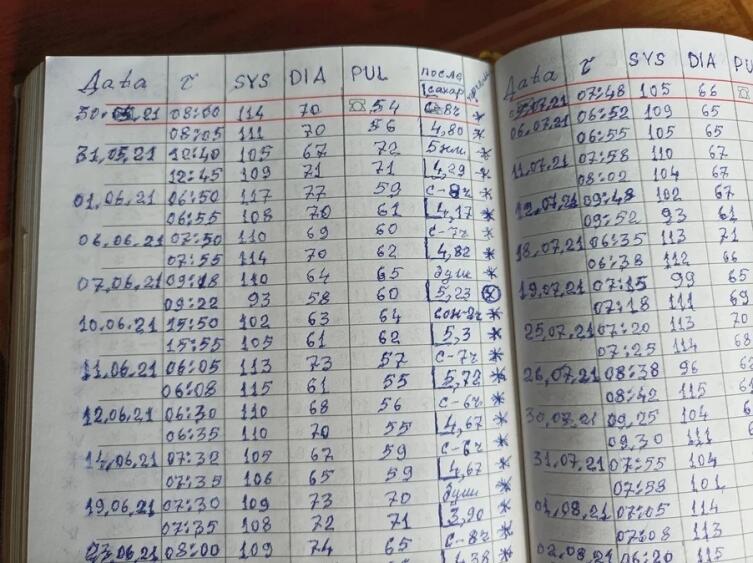 Дата τ SYS DIA PUL после сахар
30.05.21 08:00 114 70 54 с-8ч *
08:05 111 70 56 4,80 *
31.05.21 12:40 105 67 72 *
12:45 109 71 71 4,29 *
01.06.21 06:50 117 77 59 с-8ч *
06:55 108 70 61 4,17 *
06.06.21 07:50 110 69 60 с-7ч *
07:55 114 70 62 4,82 *
07.06.21 09:18 110 64 65 душ *
09:22 93 58 60 5,23
10.06.21 15:50 102 63 64 сон-2ч *
15:55 105 61 62 5,3 *
11.06.21 06:05 113 73 57 с-7ч *
06:08 115 61 55 5,72 *
12.06.21 06:30 110 68 56 с-6ч *
06:35 110 70 55 4,67 *
14.06.21 07:32 105 67 59 с-6ч *
07:35 106 65 59 4,67 *
19.06.21 07:30 109 73 70 душ *
07:35 108 72 71 3,90 *
06.21 08:00 109 74 65 с-8ч *
4,38 *
Дата τ SYS DIA PU
07.21 07:48 105 66
06.07.21 06:52 109 65
06:55 105 65
11.07.21 07:58 110 67
08:02 104 67
12.07.21 09:48 102 67
09:52 93 61
18.07.21 06:35 113 71
06:38 112 66
19.07.21 07:15 99 65
07:18 111 69
25.07.21 07:20 113 70
07:25 114 68
26.07.21 08:38 96 62
08:42 115 61
30.07.21 09.25 104 6
09.30 111 6
31.07.21 07:55 104
07:58 101
01.08.21 07:05 114
07:08 113
02.08.21 06:20 115